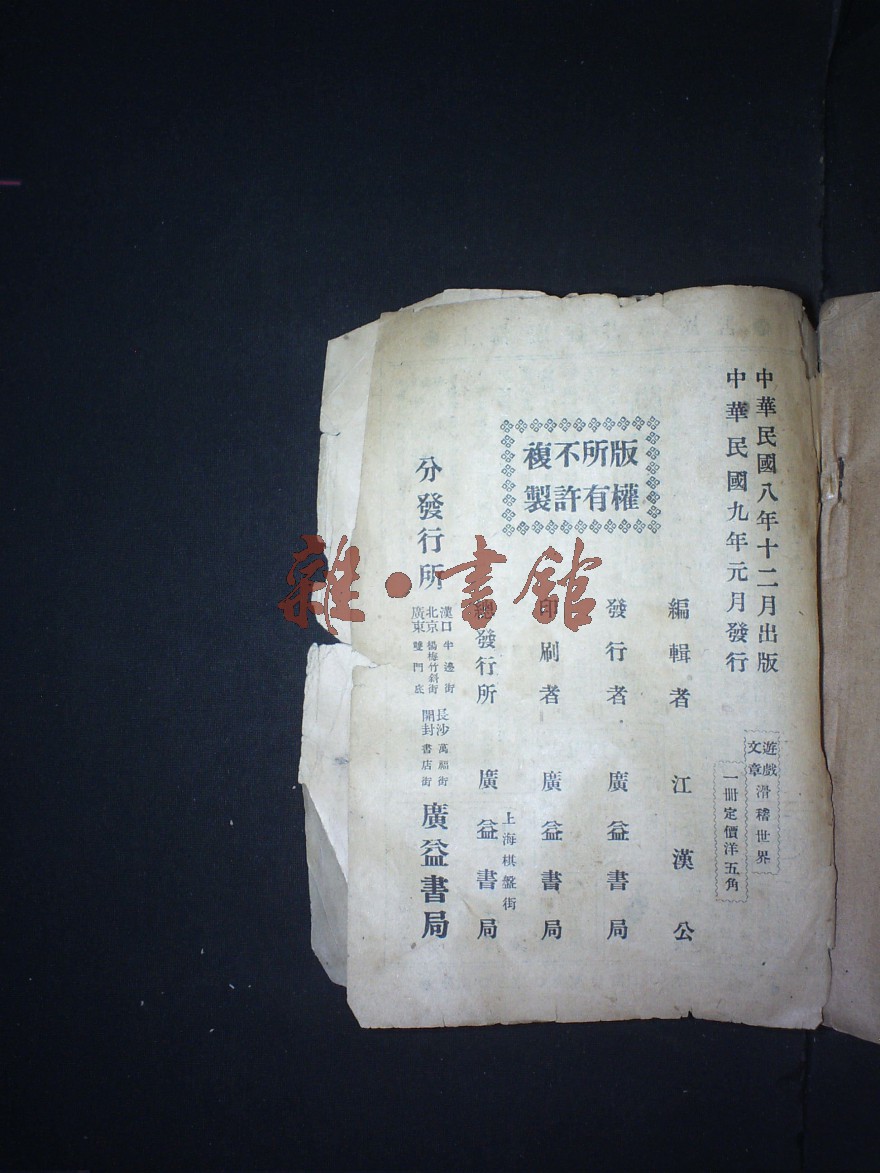 中華民國八年十二月出版
中華民國九年元月發行
遊戲文章 滑稽世界
一冊定價洋五角
版權所有不許複製
編輯者 江漢公
發行者 廣益書局
印刷者 廣益書局
上海棋盤街
總發行所 廣益書局
分發行所
漢口 半邊街
北京 楊梅竹斜街
廣東 雙門底
長沙 萬福街
開封 書店街
廣益書局
雜·書館